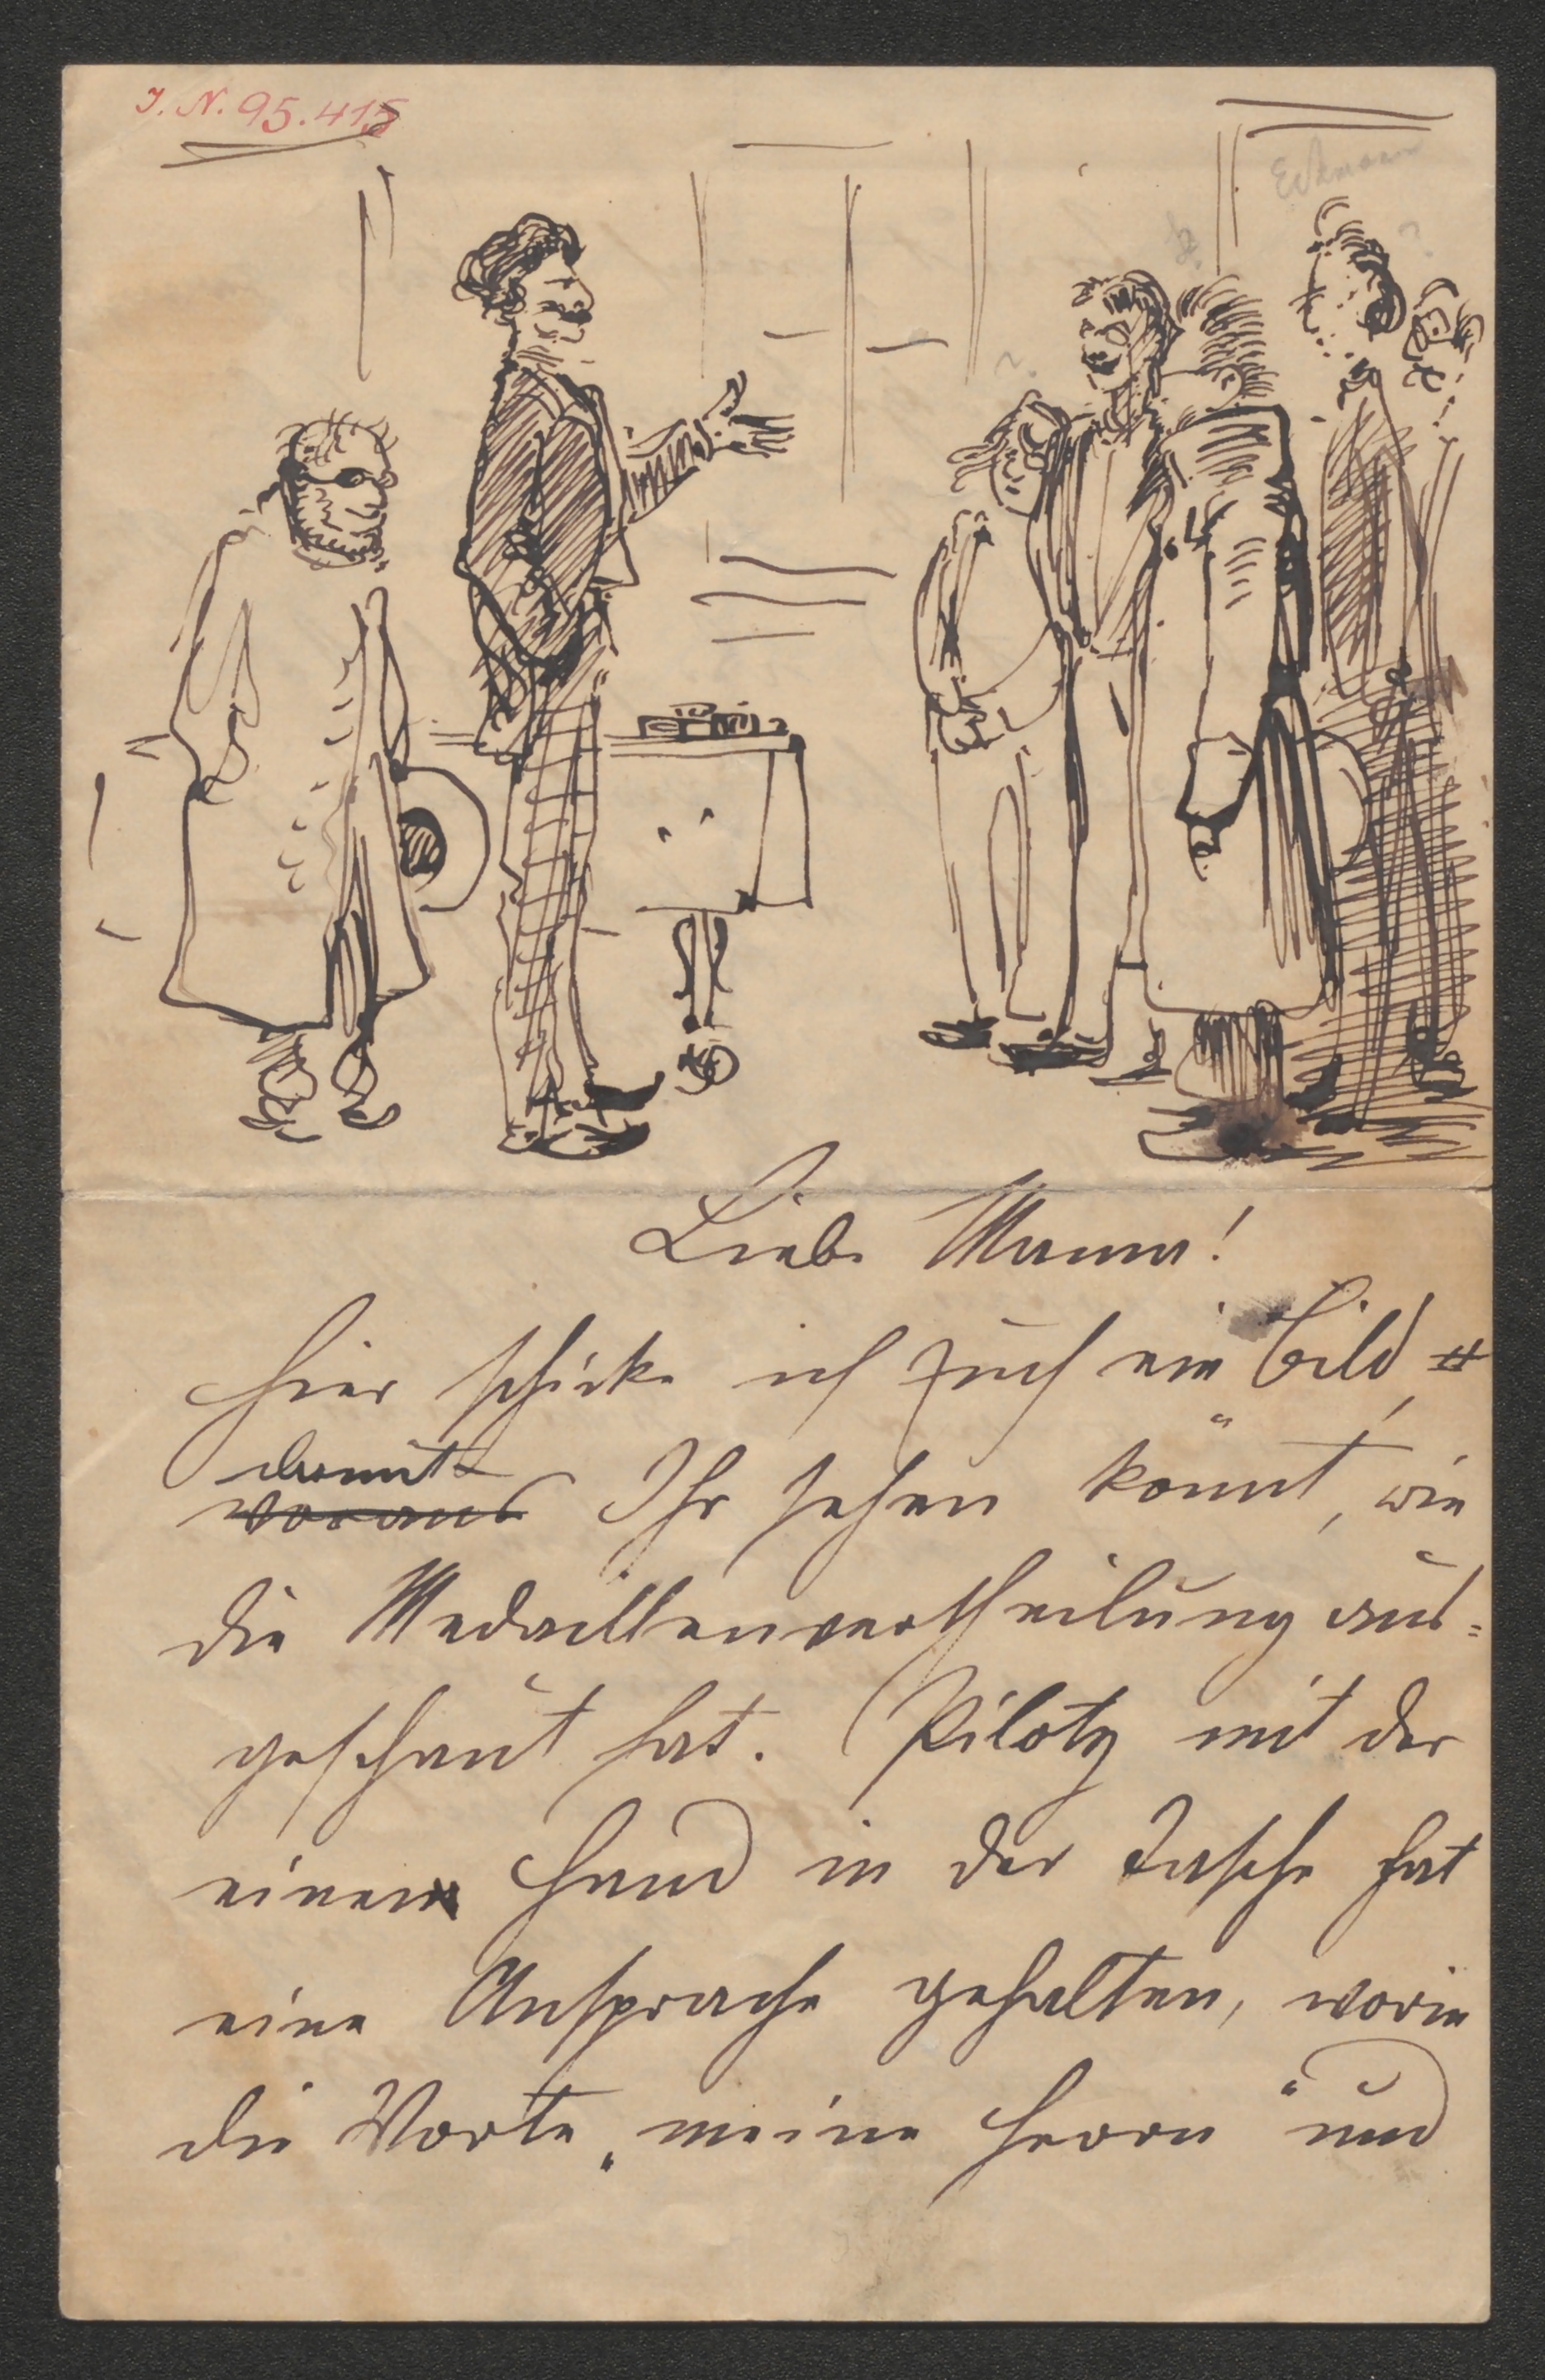 I. N. 95.415
Liebe Mama!
Hier schicke ich Euch ein Bild,
damit
woraus Ihr sehen könnt, wie
die Medaillenvertheilung aus=
geschaut hat. Piloty mit der
einen Hand in der Tasche hat
eine Ansprache gehalten, worin
die Worte „meine Herrn“ und